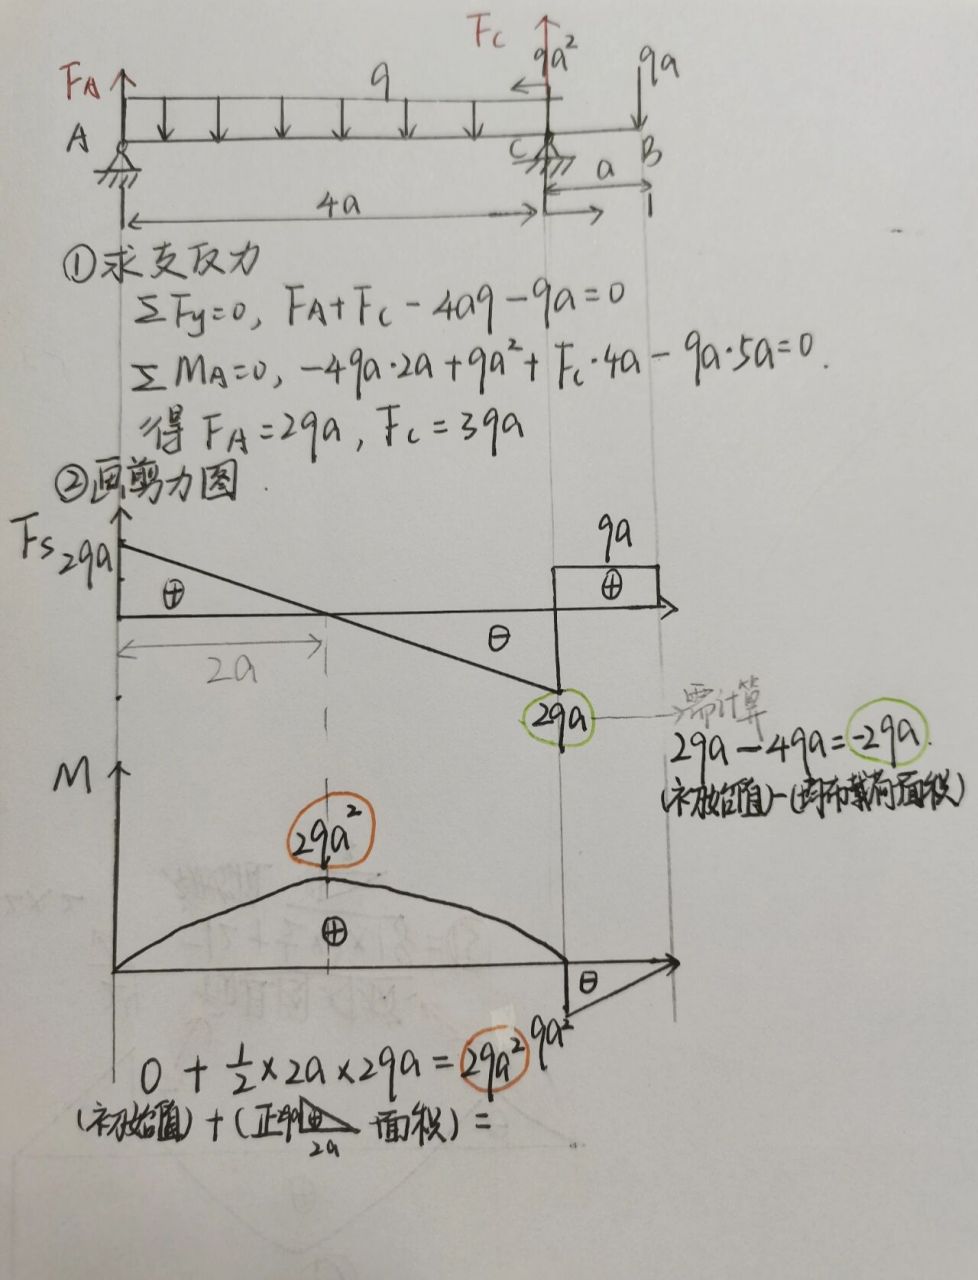 Fc
FA
q
qa²
qa
A
C
B
a
4a
①求支反力
ΣFy=0, FA+Fc-4aq-qa=0
ΣMA=0, -4qa·2a+qa²+Fc·4a-qa·5a=0.
得 FA=2qa, Fc=3qa
②画剪力图
Fs
2qa
qa
⊕
⊕
⊖
2a
2qa
需计算
2qa-4qa=-2qa
(初始值)-(均布载荷面积)
M
2qa²
⊕
⊖
qa²
0+½×2a×2qa=2qa²
(初始值)+(正 2qa ⊕ 面积)=
2a